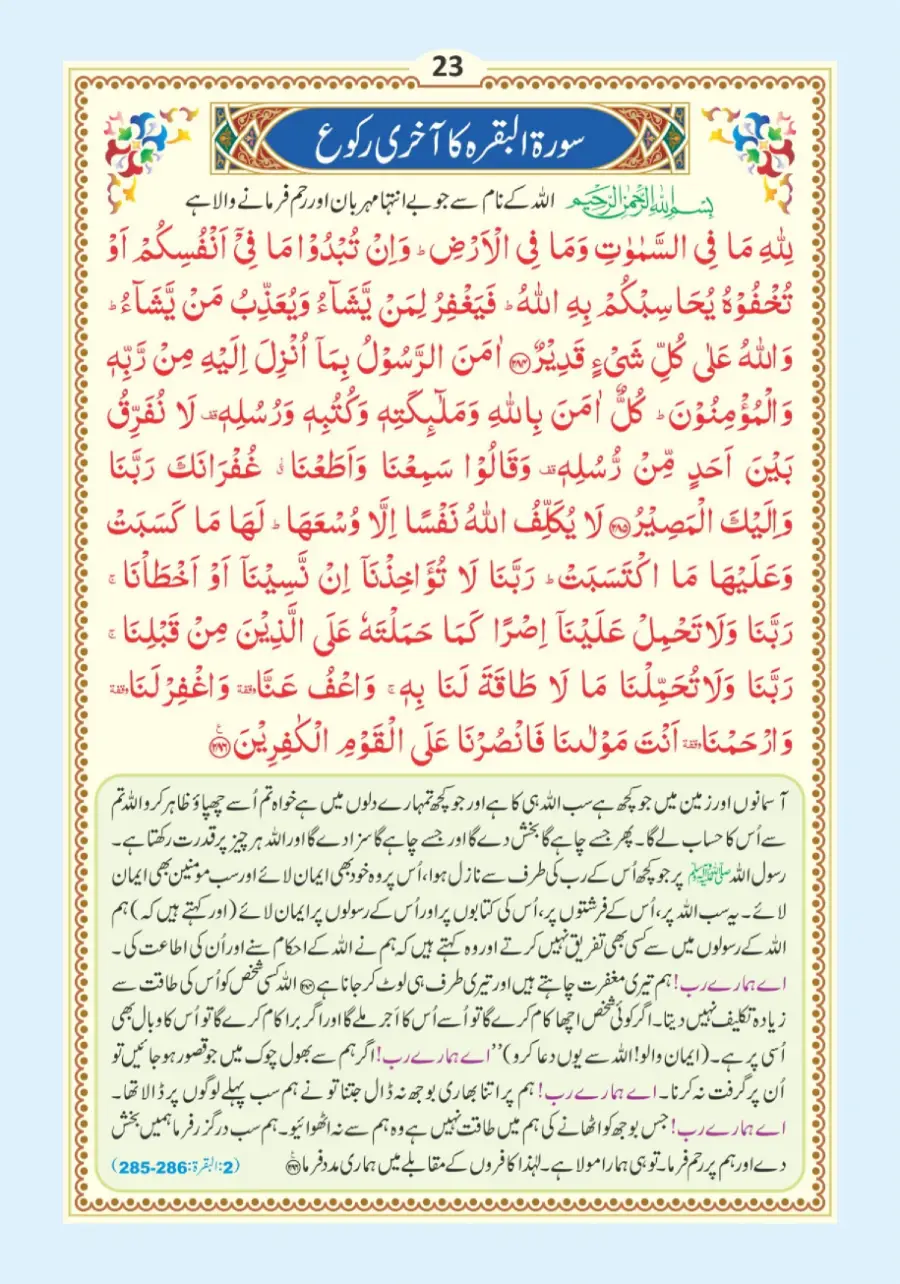 23
سورۃ البقرہ کا آخری رکوع
بِسْمِ اللهِ الرَّحْمٰنِ الرَّحِيْمِ اللہ کے نام سے جو بے انتہا مہربان اور رحم فرمانے والا ہے
لِلّٰهِ مَا فِی السَّمٰوٰتِ وَمَا فِی الْاَرْضِ ؕ وَاِنْ تُبْدُوْا مَا فِیْۤ اَنْفُسِكُمْ اَوْ
تُخْفُوْهُ یُحَاسِبْكُمْ بِهِ اللّٰهُ ؕ فَیَغْفِرُ لِمَنْ یَّشَآءُ وَیُعَذِّبُ مَنْ یَّشَآءُ ؕ
وَاللّٰهُ عَلٰی كُلِّ شَیْءٍ قَدِیْرٌ ﴿۲۸۴﴾ اٰمَنَ الرَّسُوْلُ بِمَاۤ اُنْزِلَ اِلَیْهِ مِنْ رَّبِّهٖ
وَالْمُؤْمِنُوْنَ ؕ كُلٌّ اٰمَنَ بِاللّٰهِ وَمَلٰٓىِٕكَتِهٖ وَكُتُبِهٖ وَرُسُلِهٖ قف لَا نُفَرِّقُ
بَیْنَ اَحَدٍ مِّنْ رُّسُلِهٖ قف وَقَالُوْا سَمِعْنَا وَاَطَعْنَا ۫ غُفْرَانَكَ رَبَّنَا
وَاِلَیْكَ الْمَصِیْرُ ﴿۲۸۵﴾ لَا یُكَلِّفُ اللّٰهُ نَفْسًا اِلَّا وُسْعَهَا ؕ لَهَا مَا كَسَبَتْ
وَعَلَیْهَا مَا اكْتَسَبَتْ ؕ رَبَّنَا لَا تُؤَاخِذْنَاۤ اِنْ نَّسِیْنَاۤ اَوْ اَخْطَاْنَا ۚ
رَبَّنَا وَلَا تَحْمِلْ عَلَیْنَاۤ اِصْرًا كَمَا حَمَلْتَهٗ عَلَی الَّذِیْنَ مِنْ قَبْلِنَا ۚ
رَبَّنَا وَلَا تُحَمِّلْنَا مَا لَا طَاقَةَ لَنَا بِهٖ ۚ وَاعْفُ عَنَّا وقفة وَاغْفِرْ لَنَا وقفة
وَارْحَمْنَا وقفة اَنْتَ مَوْلٰىنَا فَانْصُرْنَا عَلَی الْقَوْمِ الْكٰفِرِیْنَ ﴿۲۸۶﴾
آسمانوں اور زمین میں جو کچھ ہے سب اللہ ہی کا ہے اور جو کچھ تمہارے دلوں میں ہے خواہ تم اُسے چھپاؤ ظاہر کرو اللہ تم
سے اُس کا حساب لے گا۔ پھر جسے چاہے گا بخش دے گا اور جسے چاہے گا سزا دے گا اور اللہ ہر چیز پر قدرت رکھتا ہے۔
رسول اللہ ﷺ پر جو کچھ اُس کے رب کی طرف سے نازل ہوا، اُس پر وہ خود بھی ایمان لائے اور سب مومنین بھی ایمان
لائے۔ یہ سب اللہ پر، اُس کے فرشتوں پر، اُس کی کتابوں پر اور اُس کے رسولوں پر ایمان لائے (اور کہتے ہیں کہ) ہم
اللہ کے رسولوں میں سے کسی بھی تفریق نہیں کرتے اور وہ کہتے ہیں کہ ہم نے اللہ کے احکام سنے اور اُن کی اطاعت کی۔
اے ہمارے رب! ہم تیری مغفرت چاہتے ہیں اور تیری طرف ہی لوٹ کر جانا ہے اللہ کسی شخص کو اُس کی طاقت سے
زیادہ تکلیف نہیں دیتا۔ اگر کوئی شخص اچھا کام کرے گا تو اُسے اُس کا اَجر ملے گا اور اگر برا کام کرے گا تو اُس کا وبال بھی
اُسی پر ہے۔ (ایمان والو! اللہ سے یوں دعا کرو) ’’اے ہمارے رب! اگر ہم سے بھول چوک میں جو قصور ہو جائیں تو
اُن پر گرفت نہ کرنا۔ اے ہمارے رب! ہم پر اتنا بھاری بوجھ نہ ڈال جتنا تو نے ہم سب پہلے لوگوں پر ڈالا تھا۔
اے ہمارے رب! جس بوجھ کو اٹھانے کی ہم میں طاقت نہیں ہے وہ ہم سے نہ اٹھوائیو۔ ہم سب درگزر فرما ہمیں بخش
دے اور ہم پر رحم فرما۔ تو ہی ہمارا مولا ہے۔ لہٰذا کافروں کے مقابلے میں ہماری مدد فرما (2:البقرة:286-285)